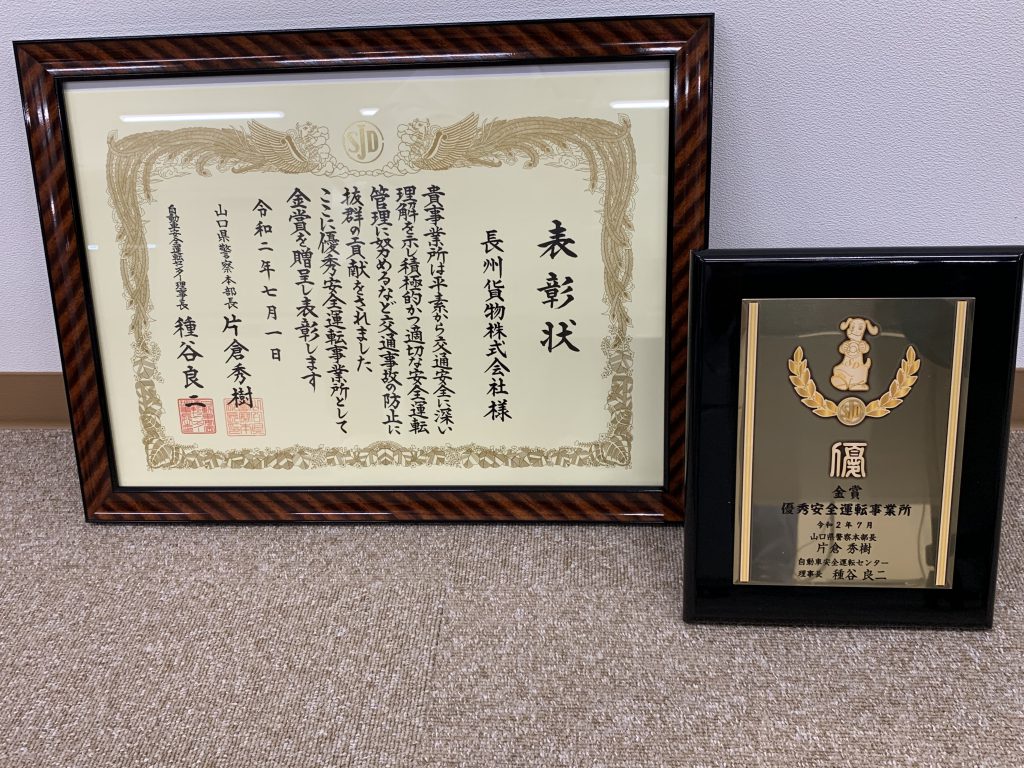 SJD
表彰状
長州貨物株式会社様
貴事業所は平素から交通安全に深い
理解を示し積極的かつ適切な安全運転
管理に努めるなど交通事故の防止に
抜群の貢献をされました
ここに優秀安全運転事業所として
金賞を贈呈し表彰します
令和二年七月一日
山口県警察本部長 片倉秀樹
自動車安全運転センター理事長 種谷良二
SJD
優
金賞
優秀安全運転事業所
令和2年7月
山口県警察本部長
片倉 秀樹
自動車安全運転センター
理事長 種谷 良二